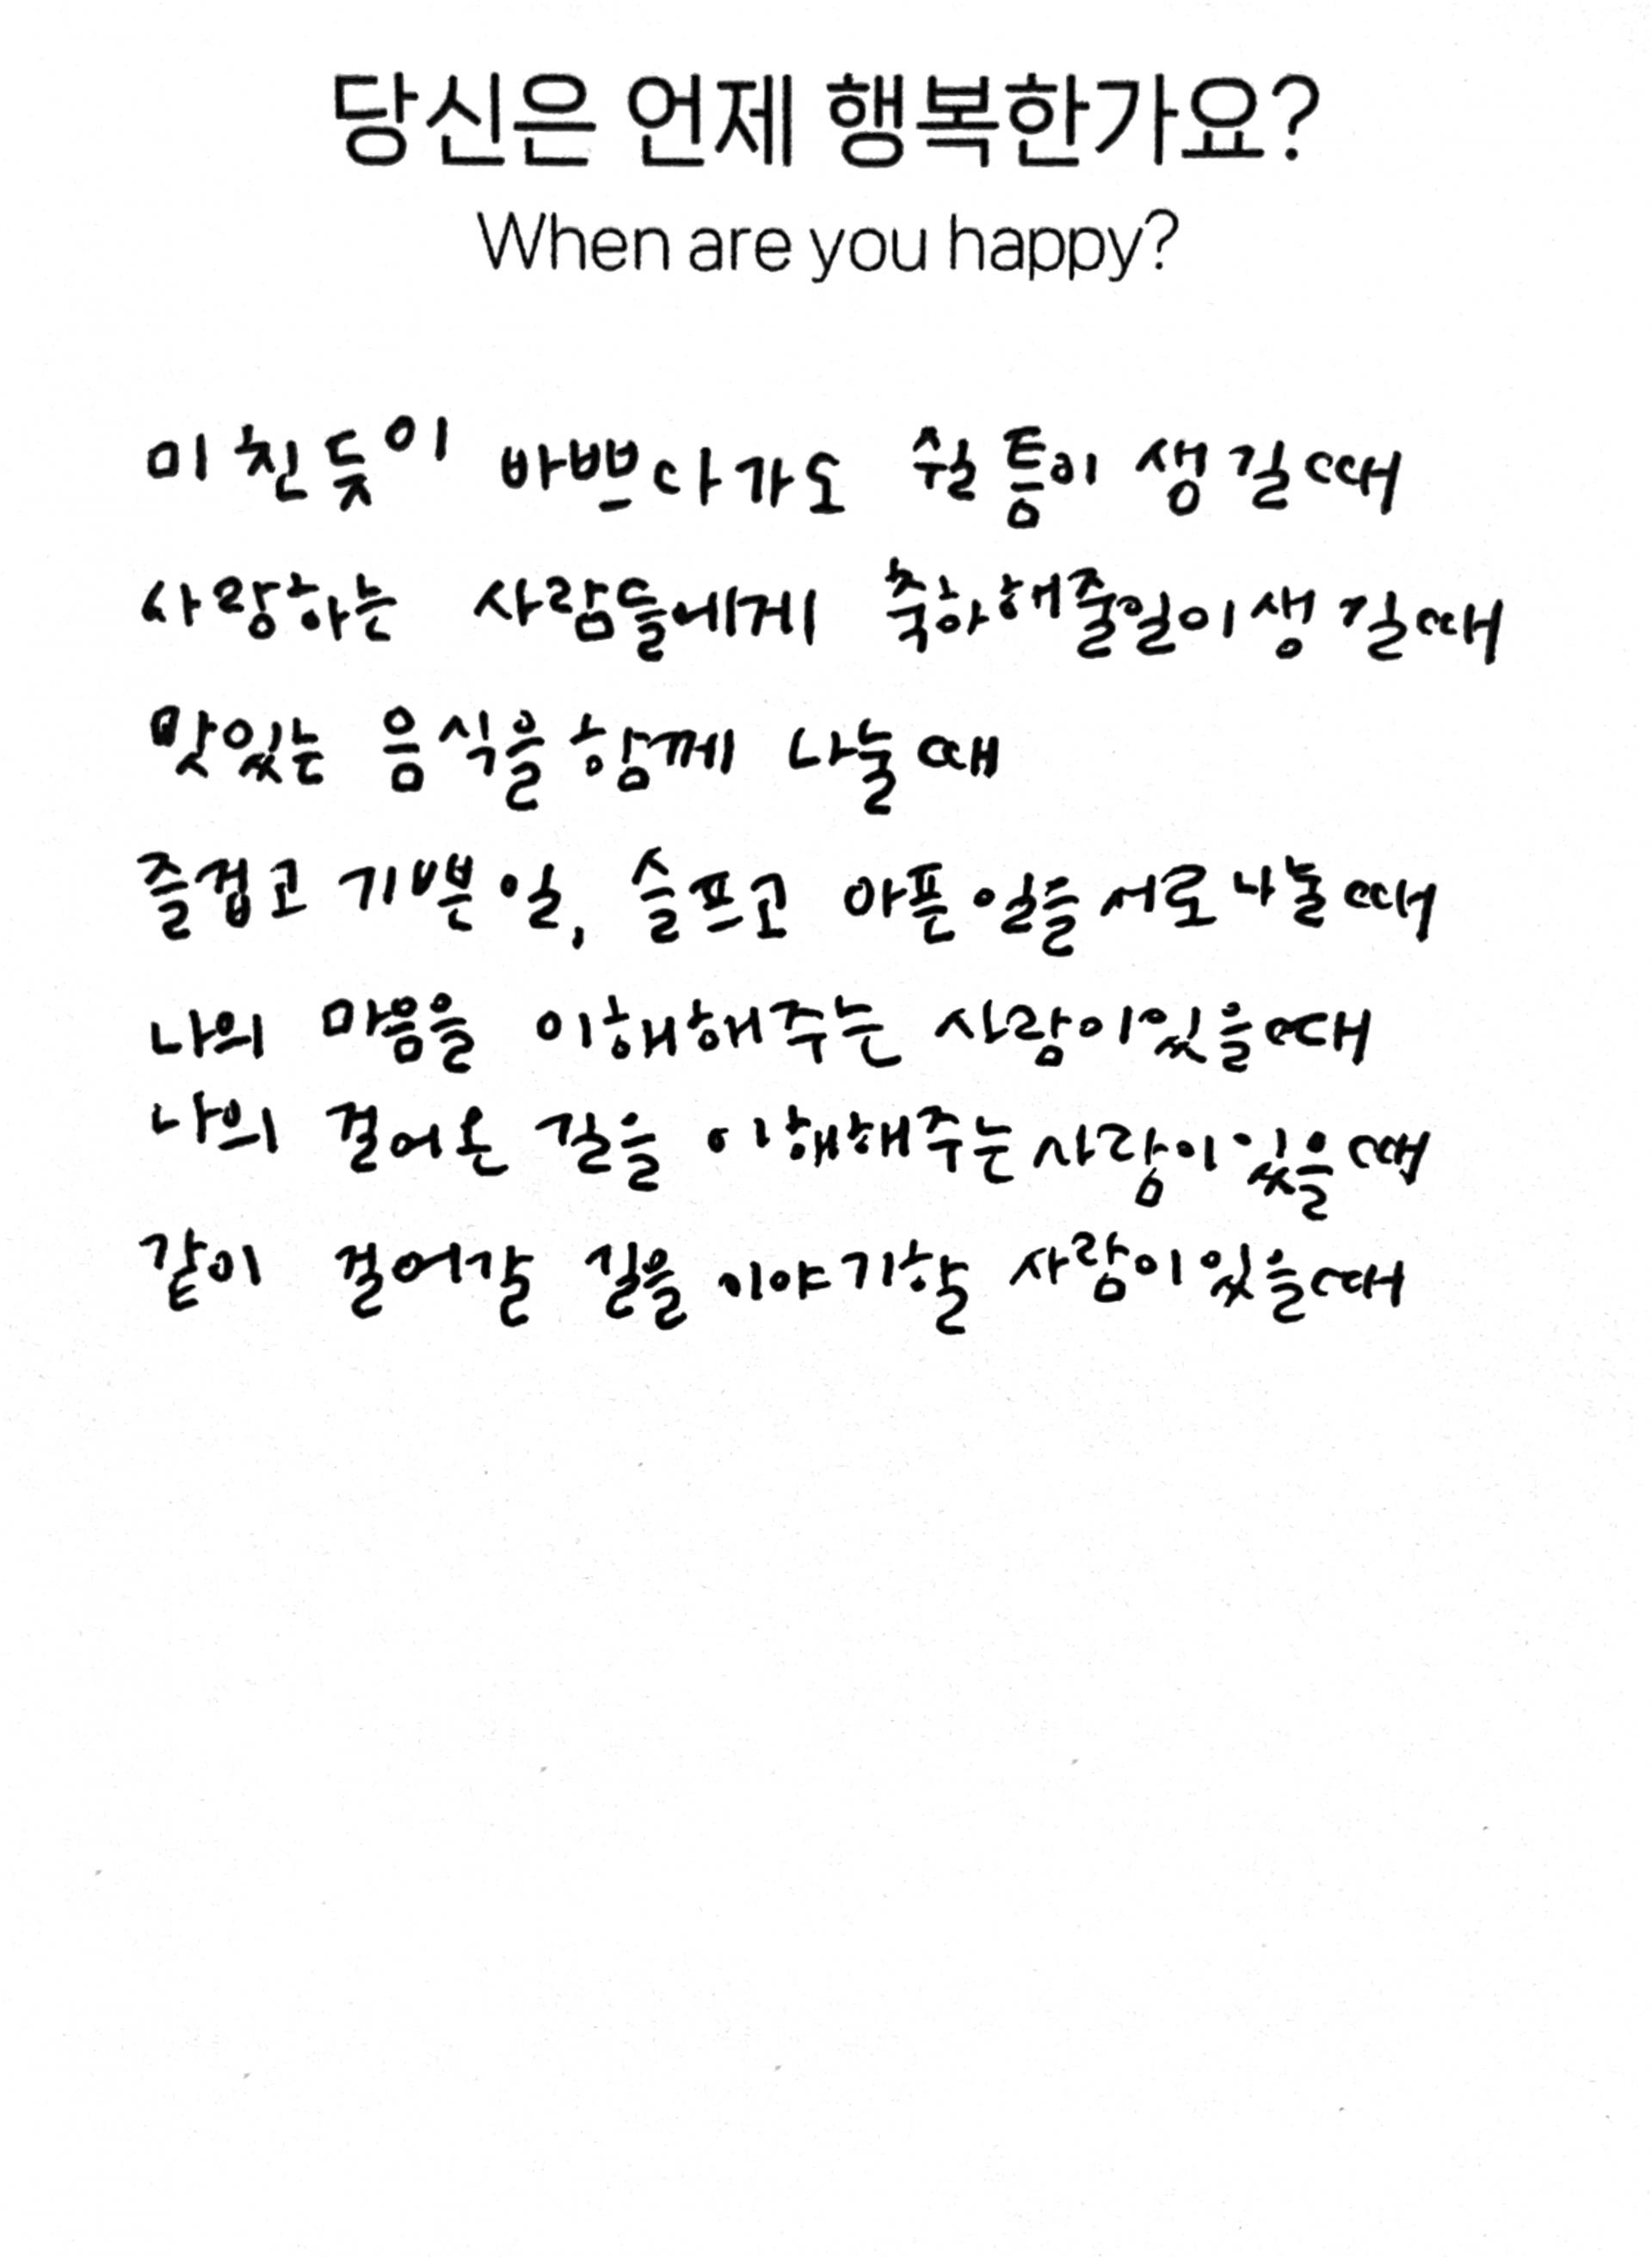 당신은 언제 행복한가요?
When are you happy?
미친듯이 바쁘다가도 쉴 틈이 생길때
사랑하는 사람들에게 축하해줄일이 생길때
맛있는 음식을 함께 나눌때
즐겁고 기쁜일, 슬프고 아픈일들 서로 나눌때
나의 마음을 이해해주는 사람이있을때
나의 걸어온 길을 이해해주는 사람이 있을때
같이 걸어갈 길을 이야기할 사람이 있을때